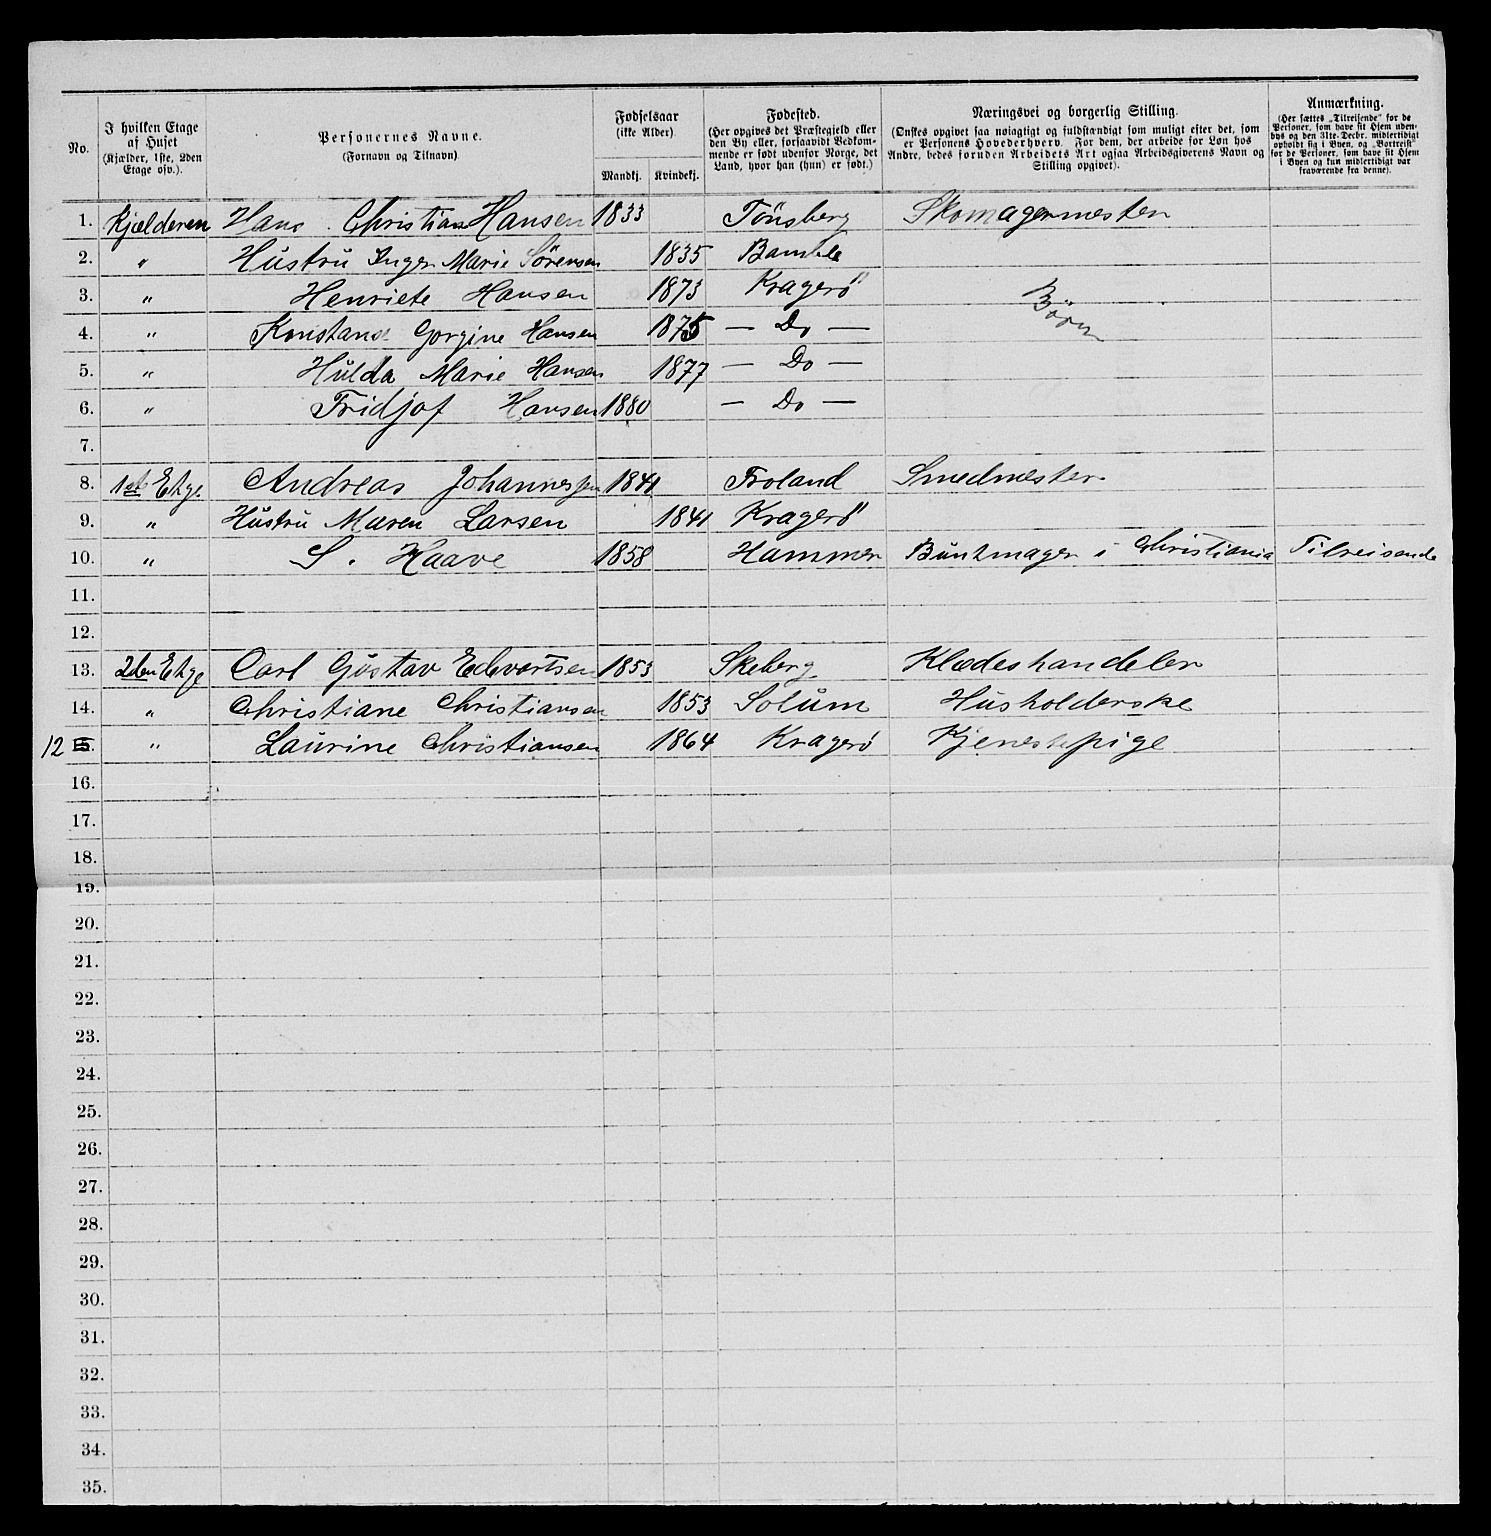 No.
I hvilken Etage af Huset (Kjælder, 1ste, 2den Etage osv.).
Personernes Navne. (Fornavn og Tilnavn).
Fødselsaar (ikke Alder)
Mandkj. Kvindekj.
Fødested. (Her opgives det Præstegjeld eller den By eller, forsaavidt Vedkommende er født udenfor Norge, det Land, hvor han (hun) er født.)
Næringsvei og borgerlig Stilling. (Ønskes opgivet saa nøiagtigt og fuldstændigt som muligt efter det, som er Personens Hovederhverv. For dem, der arbeide for Løn hos Andre, bedes foruden Arbeidets Art ogsaa Arbeidsgiverens Navn og Stilling opgivet).
Anmærkning. (Her sættes „Tilreisende" for de Personer, som have sit Hjem udenbys og den 31te Decbr. midlertidigt opholdt sig i Byen, og „Bortreist" for de Personer, som have sit Hjem i Byen og kun midlertidigt var fraværende fra denne).
1. Kjælderen Hans Christian Hansen 1833 Tönsberg Skomagermester
2. " Hustru Inger Marie Sörensen 1835 Bamble
3. " Henriete Hansen 1873 Kragerö Börn
4. " Konstanse Gorgine Hansen 1875 — Do —
5. " Hulda Marie Hansen 1877 — Do —
6. " Fridjof Hansen 1880 — Do —
7.
8. 1ste Etge Andreas Johannessen 1841 Froland Smedmester
9. " Hustru Maren Larsen 1841 Kragerö
10. " S. Haave 1858 Hammer Buntmager i Christiania Tilreisende
11.
12.
13. 2den Etge Carl Gustav Edvartsen 1853 Skeberg Klædeshandeler
14. " Christiane Christiansen 1853 Solum Husholderske
12 15. " Laurine Christiansen 1864 Kragerö Tjenestepige
16.
17.
18.
19.
20.
21.
22.
23.
24.
25.
26.
27.
28.
29.
30.
31.
32.
33.
34.
35.